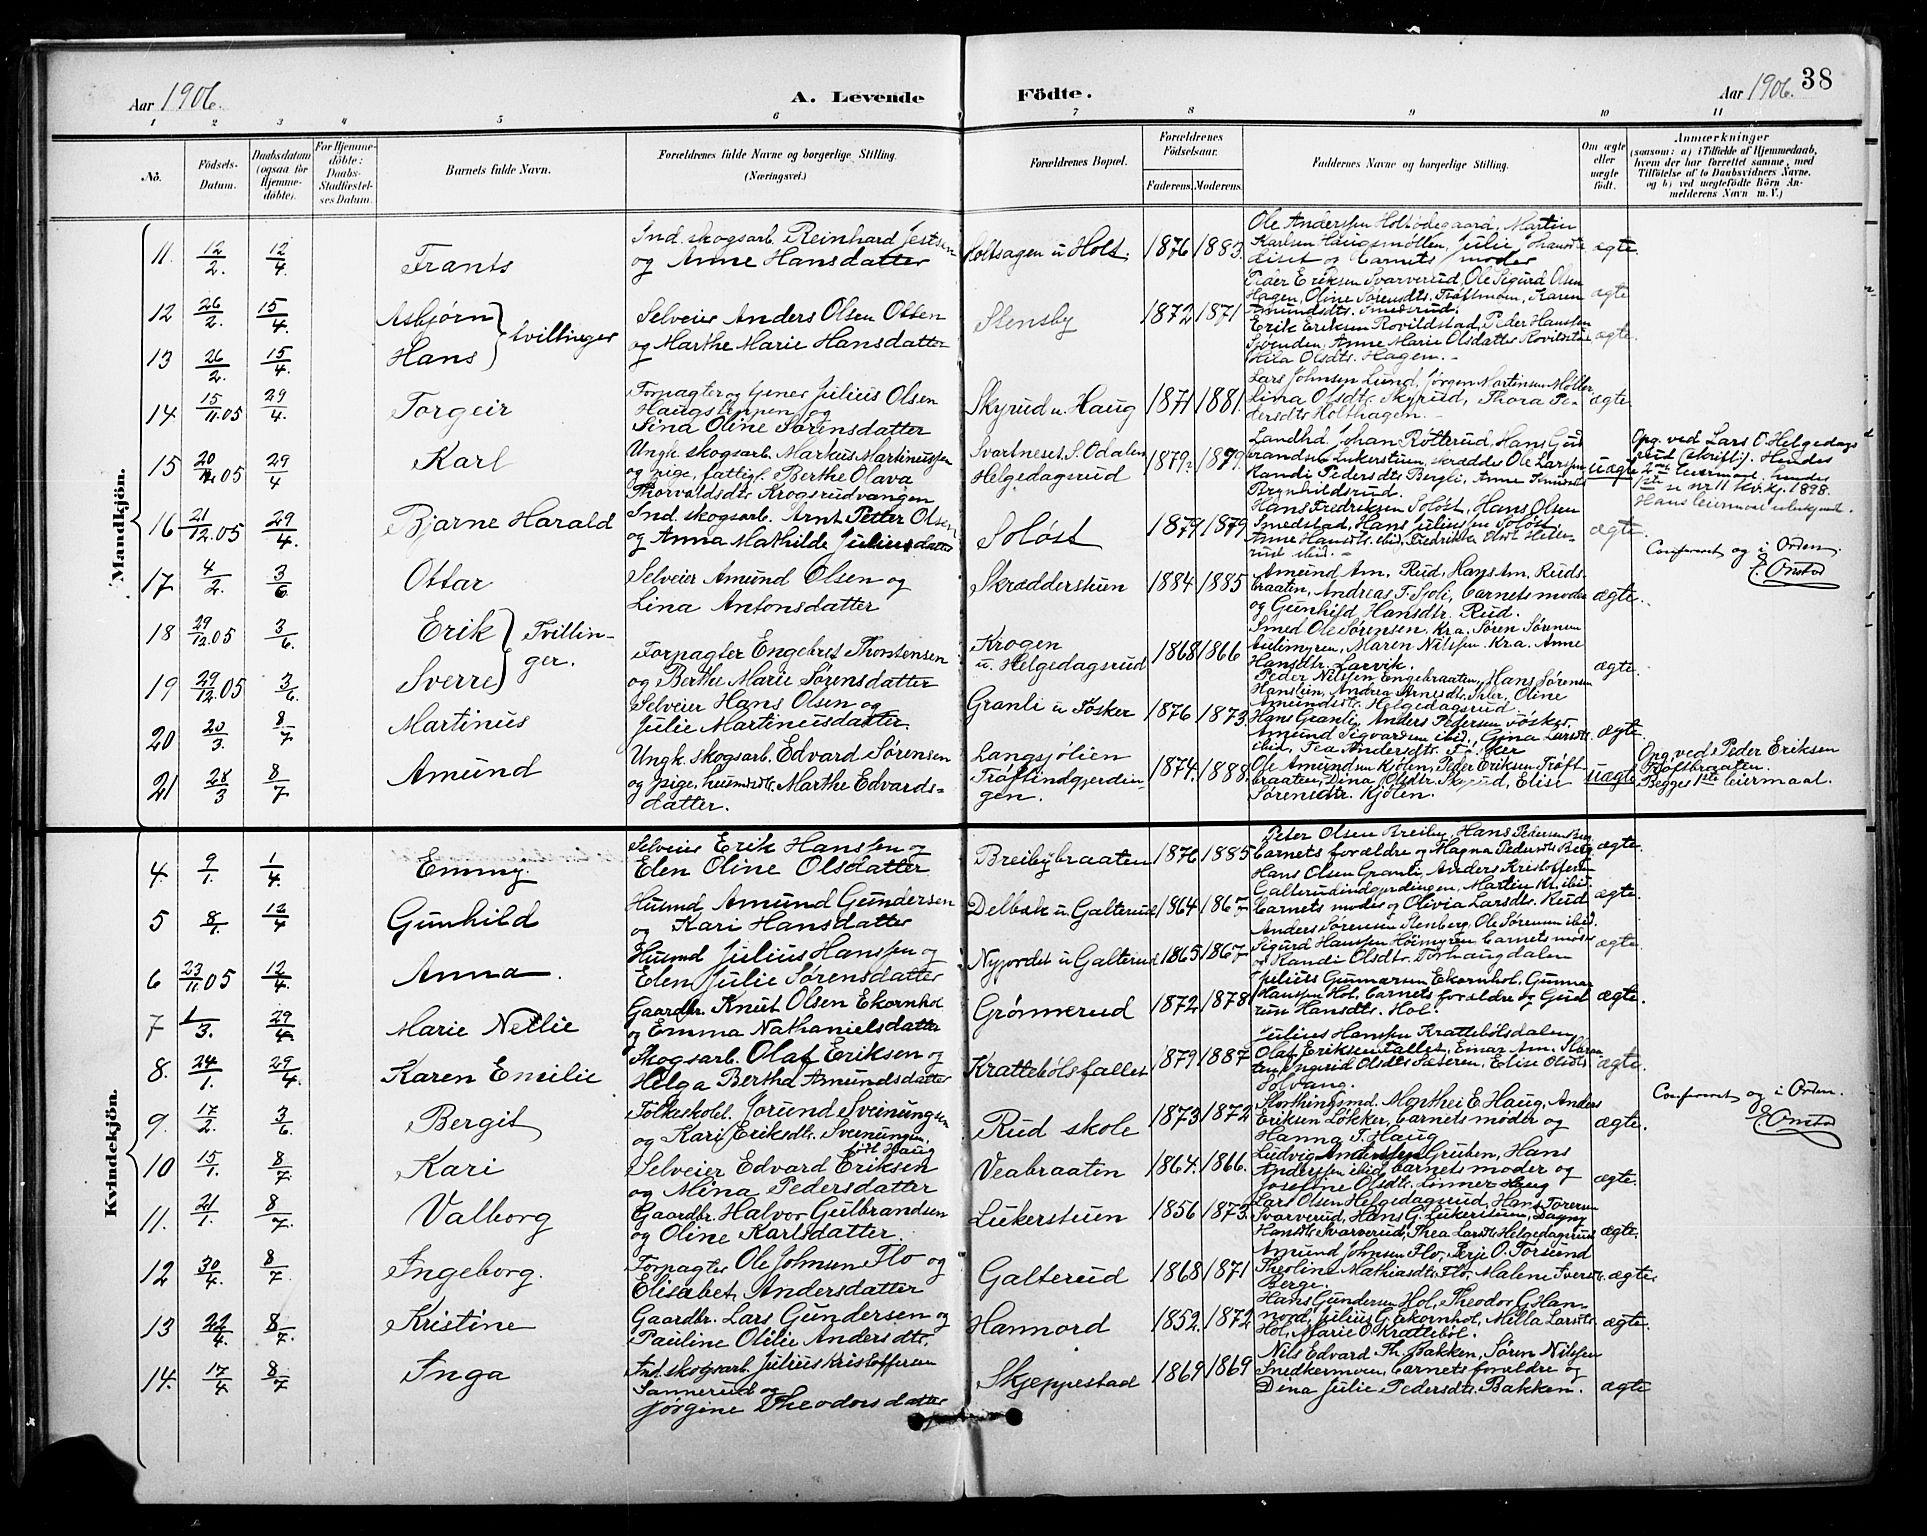 Aar 1906.
A. Levende Födte.
Aar 1906. 38
1 2 3 4 5 6 7 8 9 10 11
No.
Födsels-Datum.
Daabsdatum (ogsaa for Hjemmedöbte).
For Hjemmedöbte: Daabs-Stadfæstelses Datum.
Barnets fulde Navn.
Forældrenes fulde Navne og borgerlige Stilling.
(Næringsvei.)
Forældrenes Bopæl.
Forældrenes Födselsaar.
Faderens. Moderens.
Faddernes Navne og borgerlige Stilling.
Om ægte eller uægte födt.
Anmærkninger
(saasom: a) i Tilfælde af Hjemmedaab, hvem der har forrettet samme, med Tilföielse af to Daabsvidners Navne, og b) ved uægtefödte Börn Anmelderens Navn m. V.)
Mandkjön.
11. 12/2. 12/4. Frants
Ind. skogsarb. Reinhard
og Anne Hansdatter
u Holt. 1876 1883.
Ole Anderssen Holtødegaard, Martin
Karlsen Haugsmøllen, Julie
og barnets moder
ægte.
12 26/2. 15/4. Asbjørn } tvillinger
13 26/2. 15/4. Hans
Selveier Anders Olsen
og Marthe Marie Hansdatter
Stensby 1872 1871
Peder Eriksen Svarverud, Ole Sigurd Olsen
Hagen, Oline Sørensdtr. Trøftmoen, Karen
Amundsdtr. Smedsrud.
ægte
Erik Eriksen Rovildstad, Peder Hanssen
Anne Marie Olsdatter
Olsdtr. Hagen.
ægte.
14. 15/11.05 29/4. Torgeir
Forpagter og Julius Olsen
og
Lina Oline Sørensdatter
Skyrud u. Haug 1871 1881.
Lars Johnsen Lund, Jørgen Martinsen Møller,
Lina Olsdtr. Skyrud, Thora Pedersdtr Holthagen.
ægte
15 20/12.05 29/4 Karl
Ungk. skogsarb. Markus Martinussen
og pige, fattigl. Berthe Olava
Thorvaldsdtr. Krogsrudvangen
Svartneset, S. Odalen
Helgedagsrud
1879. 1879.
Landhd. Johan Røtterud, Hans Gulbrandsen Lukerstuen, skrædder Ole Larssen
Randi Pedersdtr Bergli, Anne
Brynhildsrud.
uægte
Opg. ved Lars O. Helgedagsrud (skriftl.). Hendes
2den leiermaal, hendes
1ste u nr 11 kv.kj. 1898.
Hans leiermaal ubekjendt.
16 21/12.05 29/4. Bjarne Harald
Ind. skogsarb. Arnt Petter Olsen
og Anna Mathilde Juliusdatter
Soløst 1879 1879
Hans Fredriksen Soløst, Hans Olsen
Smedstad, Hans Juliussen Soløst,
Anne Hansdtr. ibid,
ibid.
ægte.
Conferert og i Orden.
E. Onstad
17. 4/2 3/6 Ottar
Selveier Amund Olsen og
Lina Antonsdatter
Skrædderstuen 1884 1885
Amund Am. Rud, Hans Am. Rudsbraaten, Andreas T. barnets moder
og Gunhild Hansdtr. Rud.
ægte.
18 29/12.05 3/6. Erik } Tvillinger.
19 29/12.05 3/6. Sverre
Forpagter Engebret Thorstensen
og Berthe Marie Sørensdatter
Krogen
u. Helgedagsrud 1868 1866
Smed Ole Sørensen, Kra. Søren Sørensen
Maren Nilssen Kra. Anne
Hansdtr. Larvik.
Peder Nilssen Engebraaten, Hans Sørensen
Andrea Arnesdtr. Oline
Amundsdtr. Helgedagsrud.
ægte.
20 20/3. 8/7 Martinus
Selveier Hans Olsen og
Julie Martinusdatter.
Granli u Fösker 1876 1873
Hans Granli, Anders Pedersen Föskер
Amund Sigvardsen ibid, Gina Larsdtr.
ibid, Tea Andersdtr.
ægte.
21 28/3 8/7 Amund
Ungk. skogsarb. Edvard Sørensen
og pige, husmdtr. Marthe Edvardsdatter.
Langsjölien
Trøftindgjerdingen. 1874. 1888.
Ole Amundsen Kjölen, Peder Eriksen Trøftbraaten, Dina Olsdtr. Skyrud, Elise
Sörensdtr. Kjölen.
uægte
Opg. ved Peder Eriksen
Trøftbraaten.
Begges 1ste leiermaal.
Kvindekjön.
4. 9/1. 1/4. Emmy.
Selveier Erik Hanssen og
Elen Oline Olsdatter
Breibybraaten 1876 1885
Peter Olsen Breiby, Hans Pedersen Berg,
barnets forældre og Magna Pedersdtr Berg.
ægte.
5 8/1. 12/4 Gunhild
Husmd Amund Gundersen
og Kari Hansdatter
Delbæk u. Galterud 1864 1867
Hans Olsen Granli, Anders Kristoffersen
Galterudindgjerdingen, Martin Kr. ibid.
barnets moder og Olivia Larsdtr. Rud
ægte.
6 23/11.05 12/4. Anna.
Husmd Julius Hanssen og
Elen Julie Sørensdatter
Nyjordet u Galterud 1865 1867
Anders Sørensen Stenberg, Ole Sørensen ibid.
Sigurd Hanssen Høimyren barnets moder
og Randi Olsdtr. Torhaugdalen
ægte
7 1/3. 29/4 Marie Nellie
Gaardbr. Knut Olsen Ekornhol
og Emma Nathanielsdatter
Grønnerud 1872 1878
Julius Gunnarsen Ekornhol, Gunnar
Hanssen Hol, barnets forældre og Gudrun Hansdtr. Hol.
ægte.
8. 24/1. 29/4. Karen Emilie
Skogsarb. Olaf Eriksen og
Helga Bertha Amundsdatter
Krattebölsfallet 1879 1887
Julius Hanssen Krattebölsdalen,
Olaf Eriksen Fallet, Einar Am.
Ingrid Olsdtr Sæteren, Elise Olsdtr
Solvang.
ægte.
9. 17/2. 3/6. Bergit
Folkeskolel. Jorund Sveinungsen
og Kari Eriksdtr. Sveinungsen,
født Haug
Rud skole 1873 1872
Storthingsmd. Mathei E Haug, Anders
Eriksen Løkker, barnets moder og
Hanna T. Haug
ægte.
Conferert og i Orden.
E. Onstad
10 15/1. 8/7. Kari
Selveier Edvard Eriksen
og Mina Pedersdatter
Veabraaten 1864. 1866.
Ludvig Anderssen Gruben, Hans
Anderssen ibid, barnets moder og
Josefine Olsdtr. Linner Haug
ægte.
11. 21/1. 8/7. Valborg
Gaardbr. Halvor Gulbrandsen
og Oline Karlsdatter.
Lukerstuen 1856 1873.
Lars Olsen Helgedagsrud, Hans Torersen
Svarverud, Hans G. Lukerstuen, Dagny
Hansdtr Svarverud, Thea Larsdtr Helgedagsrud
ægte.
12 30/4. 8/7. Ingeborg.
Forpagter Ole Johnsen Flo og
Elisabet Andersdatter
Galterud 1868 1871
Amund Johnsen Flo, Terje O. Torsund
Theoline Mathiasdtr. Flo, Malene
Berge.
ægte.
13 22/4. 8/7. Kristine
Gaardbr. Lars Gundersen og
Pauline Otilie Andersdtr.
Hannord 1852. 1872
Hans Gundersen Hol, Theodor G. Hannord, Julius G. Ekornhol, Milla Larsdtr.
Hol, Marie O. Kratteböl.
ægte.
14. 17/4 8/7 Inga
Ind. skogsarb. Julius Kristoffersen
Sannerud og
Jørgine Theodorsdatter
Skjeppestad 1869 1869
Nils Edvard Th. Bakken, Søren Nilssen
Snedkermoen, barnets forældre og
Dina Julie Pedersdtr. Bakken.
ægte